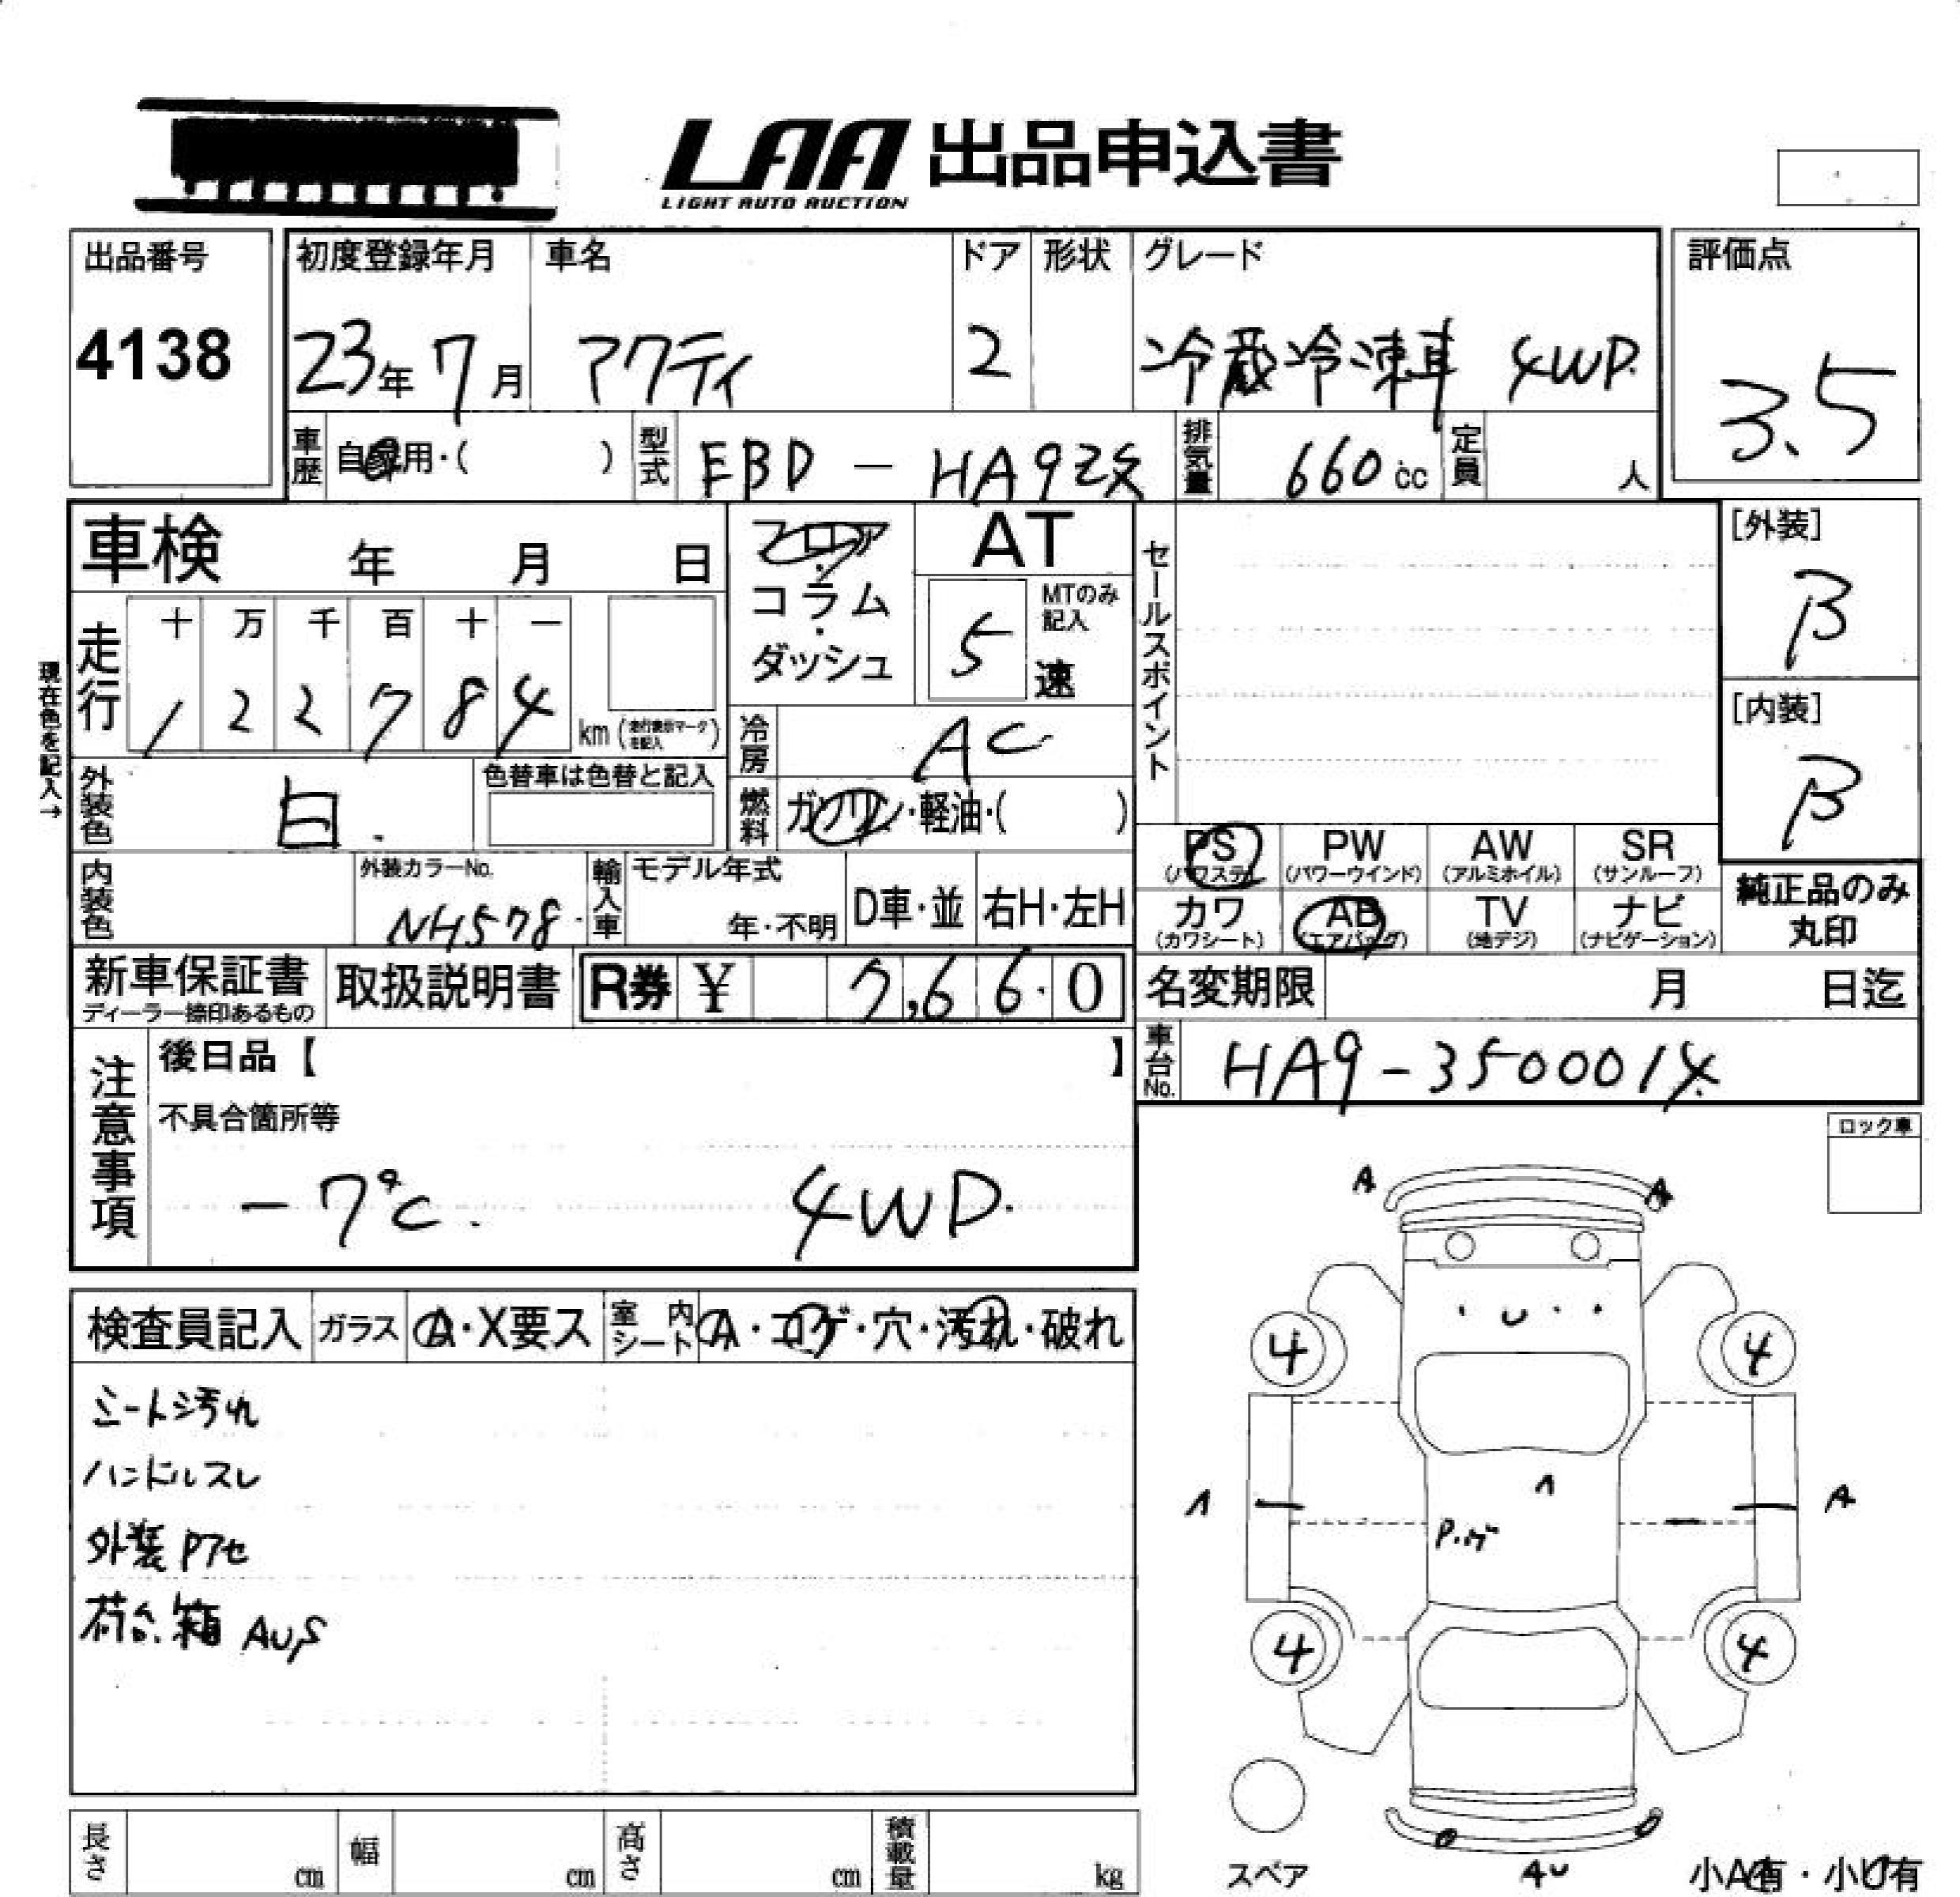 LAA 出品申込書
LIGHT AUTO AUCTION
出品番号
4138
初度登録年月
23年 7月
車名
アクティ
ドア
2
形状
グレード
冷蔵冷凍車 4WD.
評価点
3.5
車歴
自家用・( )
型式
EBD - HA9改
排気量
660 cc
定員
人
車検 年 月 日
フロア・コラム・ダッシュ
AT
MTのみ記入
5 速
セールスポイント
[外装]
B
[内装]
B
現在色を記入→
走行
十 万 千 百 十 一
1 2 2 7 8 4
km (走行表示マークを記入)
冷房
AC
外装色
白.
色替車は色替と記入
燃料
ガソリン・軽油・( )
PS
(パワステ)
PW
(パワーウインド)
AW
(アルミホイル)
SR
(サンルーフ)
内装色
外装カラーNo.
NH578.
輸入車
モデル年式
年・不明
D車・並
右H・左H
カワ
(カワシート)
AB
(エアバッグ)
TV
(地デジ)
ナビ
(ナビゲーション)
純正品のみ
丸印
新車保証書
ディーラー捺印あるもの
取扱説明書
R券 ¥ 7,660
名変期限 月 日迄
車台No.
HA9-350001X
注意事項
後日品【 】
不具合箇所等
-7℃. 4WD.
ロック車
検査員記入
ガラス
A・X要ス
室内シート
A・コゲ・穴・汚れ・破れ
シート汚れ
ハンドルスレ
外装Pアセ
荷台箱 AUS
A A
U
4 4
A
P.ゲ
4 4
スペア
AU
小A有・小U有
長さ cm
幅 cm
高さ cm
積載量 kg